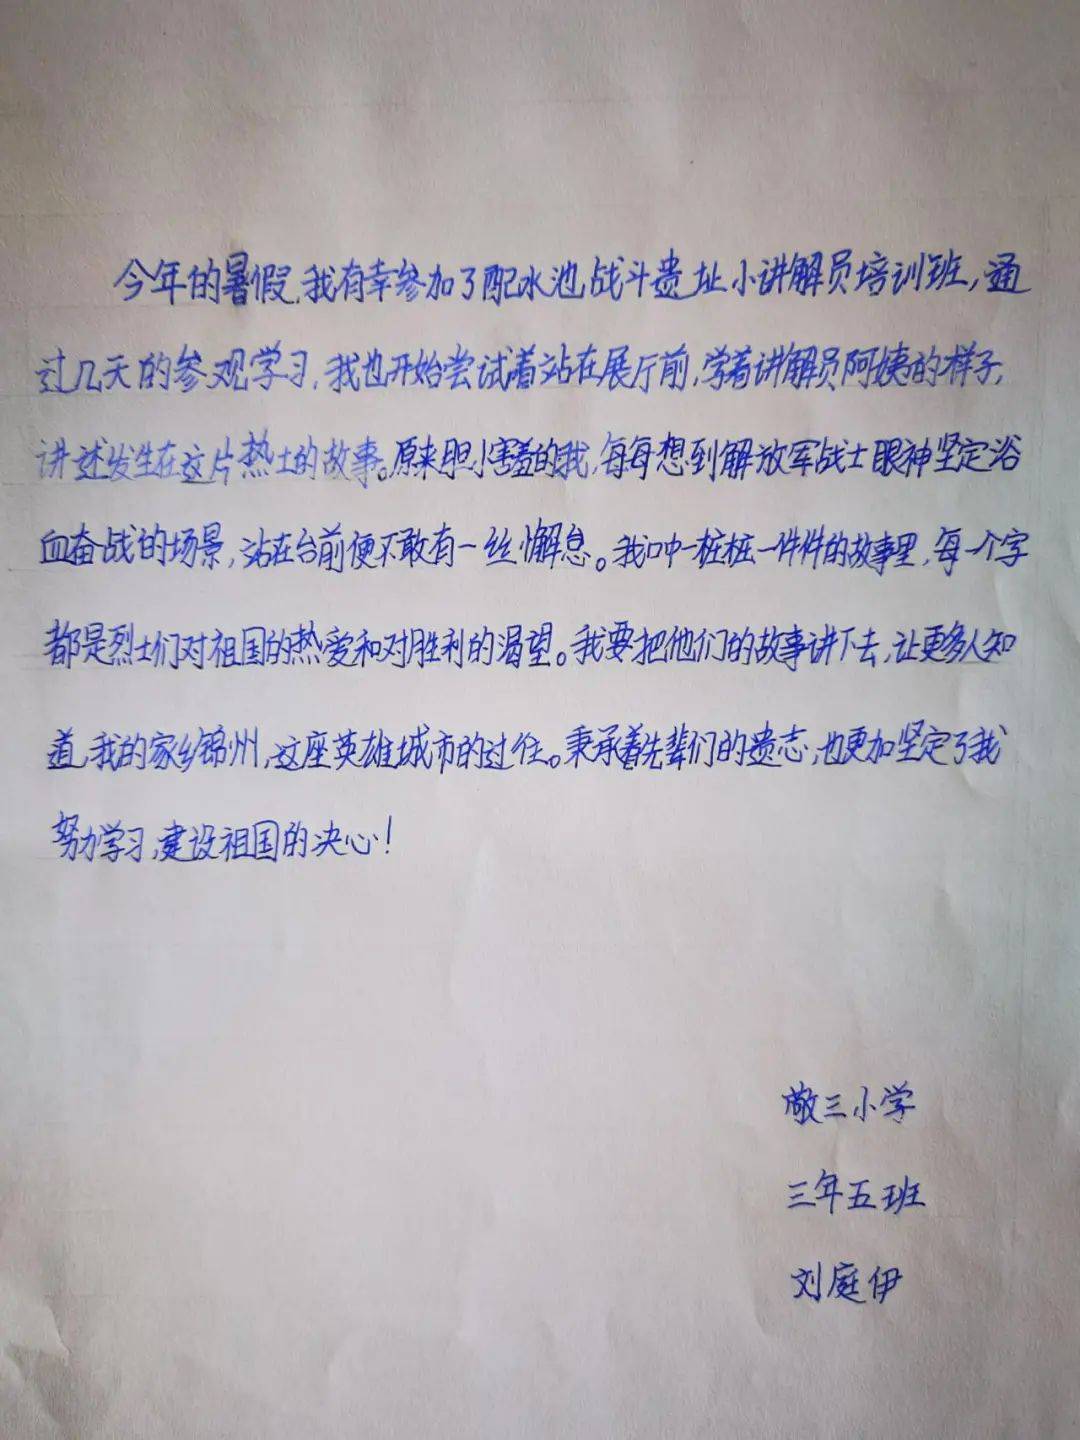 今年的暑假,我有幸参加了配水池战斗遗址小讲解员培训班,通
过几天的参观学习,我也开始尝试着站在展厅前,学着讲解员阿姨的样子,
讲述发生在这片热土的故事。原来胆小害羞的我,每每想到解放军战士眼神坚定浴
血奋战的场景,站在台前便不敢有一丝懈怠。我口中一桩桩一件件的故事里,每一个字
都是烈士们对祖国的热爱和对胜利的渴望。我要把他们的故事讲下去,让更多人知
道,我的家乡锦州,这座英雄城市的过往。秉承着先辈们的遗志,也更加坚定了我
努力学习,建设祖国的决心!
敬三小学
三年五班
刘庭伊